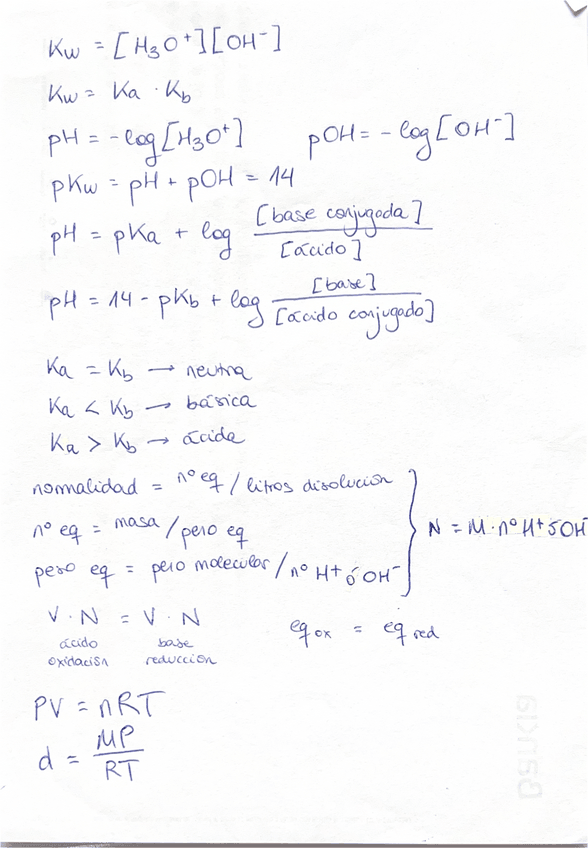 Kw = [H₃O⁺][OH⁻]
Kw = Ka · Kb
pH = -log[H₃O⁺] pOH = -log[OH⁻]
pKw = pH + pOH = 14
pH = pKa + log [base conjugada] / [ácido]
pH = 14 - pKb + log [base] / [ácido conjugado]
Ka = Kb → neutra
Ka < Kb → básica
Ka > Kb → ácida
normalidad = nº eq / litros disolución
nº eq = masa / peso eq } N = M · nº H⁺ ó OH⁻
peso eq = peso molecular / nº H⁺ ó OH⁻
V · N = V · N eq ox = eq red
ácido base
oxidación reducción
PV = nRT
d = MP / RT
Bankia